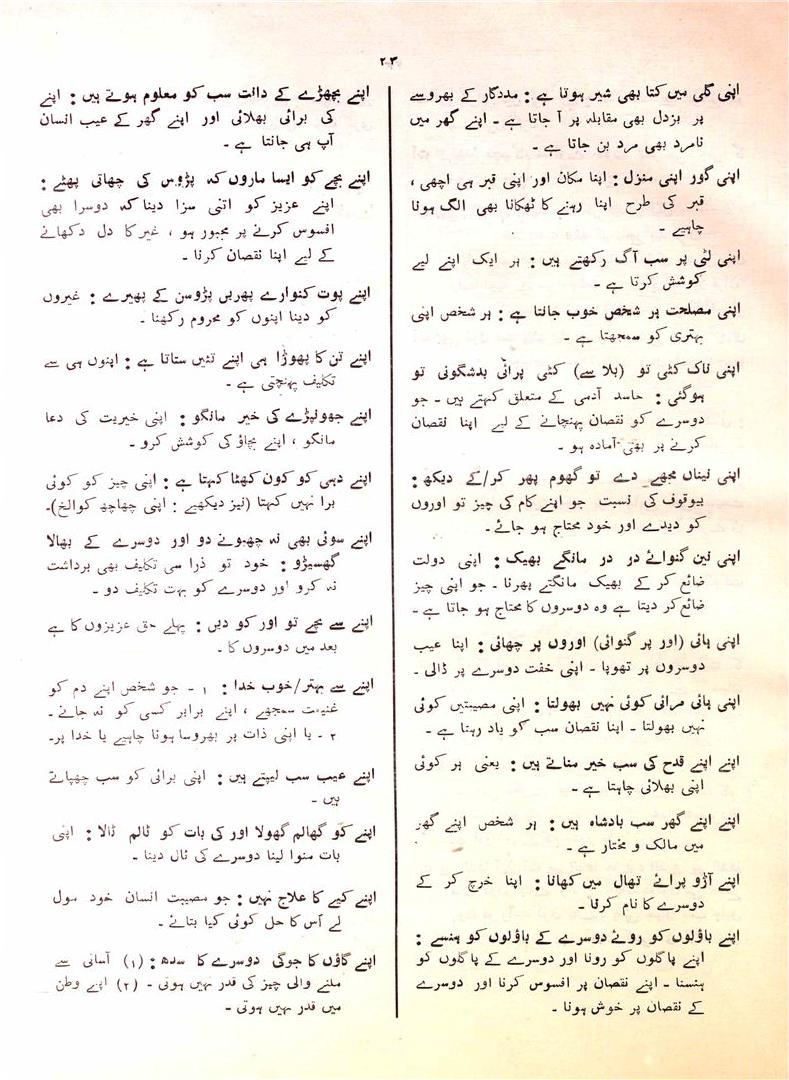 ۲۳
اپنی گلی میں کتا بھی شیر ہوتا ہے : مددگار کے بھروسے
پر بزدل بھی مقابلہ پر آ جاتا ہے ۔ اپنے گھر میں
نامرد بھی مرد بن جاتا ہے ۔
اپنی گور اپنی منزل : اپنا مکان اور اپنی قبر ہی اچھی ،
قبر کی طرح اپنا رہنے کا ٹھکانا بھی الگ ہونا
چاہیے ۔
اپنی لٹی پر سب آگ رکھتے ہیں : ہر ایک اپنے لیے
کوشش کرتا ہے ۔
اپنی مصلحت ہر شخص خوب جانتا ہے : ہر شخص اپنی
بہتری کو سمجھتا ہے ۔
اپنی ناک کٹی تو (بلا سے) کٹی پرائی بدشگونی تو
ہوگئی : حاسد آدمی کے متعلق کہتے ہیں ۔ جو
دوسرے کو نقصان پہنچانے کے لیے اپنا نقصان
کرنے پر بھی آمادہ ہو ۔
اپنی نیناں مجھے دے تو گھوم پھر کر/کے دیکھ :
بیوقوف کی نسبت جو اپنے کام کی چیز تو اوروں
کو دیدے اور خود محتاج ہو جائے ۔
اپنی نین گنوائے در در مانگے بھیک : اپنی دولت
ضائع کر کے بھیک مانگتے پھرنا ۔ جو اپنی چیز
ضائع کر دیتا ہے وہ دوسروں کا محتاج ہو جاتا ہے ۔
اپنی ہائی (اور پر گنوائی) اوروں پر چھائی : اپنا عیب
دوسروں پر تھوپا ۔ اپنی خفت دوسرے پر ڈالی ۔
اپنی ہائی مرائی کوئی نہیں بھولتا : اپنی مصیبتیں کوئی
نہیں بھولتا ۔ اپنا نقصان سب کو یاد رہتا ہے ۔
اپنے اپنے قدح کی سب خیر مناتے ہیں : یعنی ہر کوئی
اپنی بھلائی چاہتا ہے ۔
اپنے اپنے گھر سب بادشاہ ہیں : ہر شخص اپنے گھر
میں مالک و مختار ہے ۔
اپنے آڑو پرائے تھال میں کھانا : اپنا خرچ کر کے
دوسرے کا نام کرنا ۔
اپنے باؤلوں کو روئے دوسرے کے باؤلوں کو ہنسے :
اپنے پاگلوں کو رونا اور دوسرے کے پاگلوں کو
ہنسنا ۔ اپنے نقصان پر افسوس کرنا اور دوسرے
کے نقصان پر خوش ہونا ۔
اپنے بچھڑے کے دانت سب کو معلوم ہوتے ہیں : اپنے
کی برائی بھلائی اور اپنے گھر کے عیب انسان
آپ ہی جانتا ہے ۔
اپنے بچے کو ایسا ماروں کہ پڑوس کی چھاتی پھٹے :
اپنے عزیز کو اتنی سزا دینا کہ دوسرا بھی
افسوس کرنے پر مجبور ہو ، غیر کا دل دکھانے
کے لیے اپنا نقصان کرنا ۔
اپنے پوت کنوارے پھریں پڑوسن کے پھیرے : غیروں
کو دینا اپنوں کو محروم رکھنا ۔
اپنے تن کا پھوڑا ہی اپنے تئیں ستاتا ہے : اپنوں ہی سے
تکلیف پہنچتی ہے ۔
اپنے جھونپڑے کی خیر مانگو : اپنی خیریت کی دعا
مانگو ، اپنے بچاؤ کی کوشش کرو ۔
اپنے دہی کو کون کھٹا کہتا ہے : اپنی چیز کو کوئی
برا نہیں کہتا (نیز دیکھیے : اپنی چھاچھ کو الخ)۔
اپنے سوئی بھی نہ چبھونے دو اور دوسرے کے بھالا
گھسیڑو : خود تو ذرا سی تکلیف بھی برداشت
نہ کرو اور دوسرے کو بہت تکلیف دو ۔
اپنے سے بچے تو اور کو دیں : پہلے حق عزیزوں کا ہے
بعد میں دوسروں کا ۔
اپنے سے بہتر/خوب خدا : ۱ ۔ جو شخص اپنے دم کو
غنیمت سمجھے ، اپنے برابر کسی کو نہ جانے ۔
۲ ۔ یا اپنی ذات پر بھروسا ہونا چاہیے یا خدا پر۔
اپنے عیب سب لیپتے ہیں : اپنی برائی کو سب چھپاتے
ہیں ۔
اپنے کو گھالم گھولا اور کی بات کو ٹالم ٹالا : اپنی
بات منوا لینا دوسرے کی ٹال دینا ۔
اپنے کیے کا علاج نہیں : جو مصیبت انسان خود مول
لے اس کا حل کوئی کیا بتائے ۔
اپنے گاؤں کا جوگی دوسرے کا سدھ : (۱) آسانی سے
ملنے والی چیز کی قدر نہیں ہوتی ۔ (۲) اپنے وطن
میں قدر نہیں ہوتی ۔